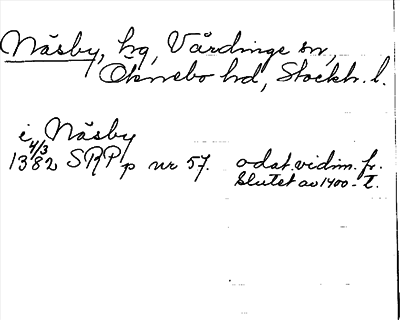 Näsby, hg, Vårdinge sn,
Öknebo hd, Stockh. l.
i Näsby
1382 4/3 SRPp nr 57. odat. vidim. fr.
slutet av 1400-t.